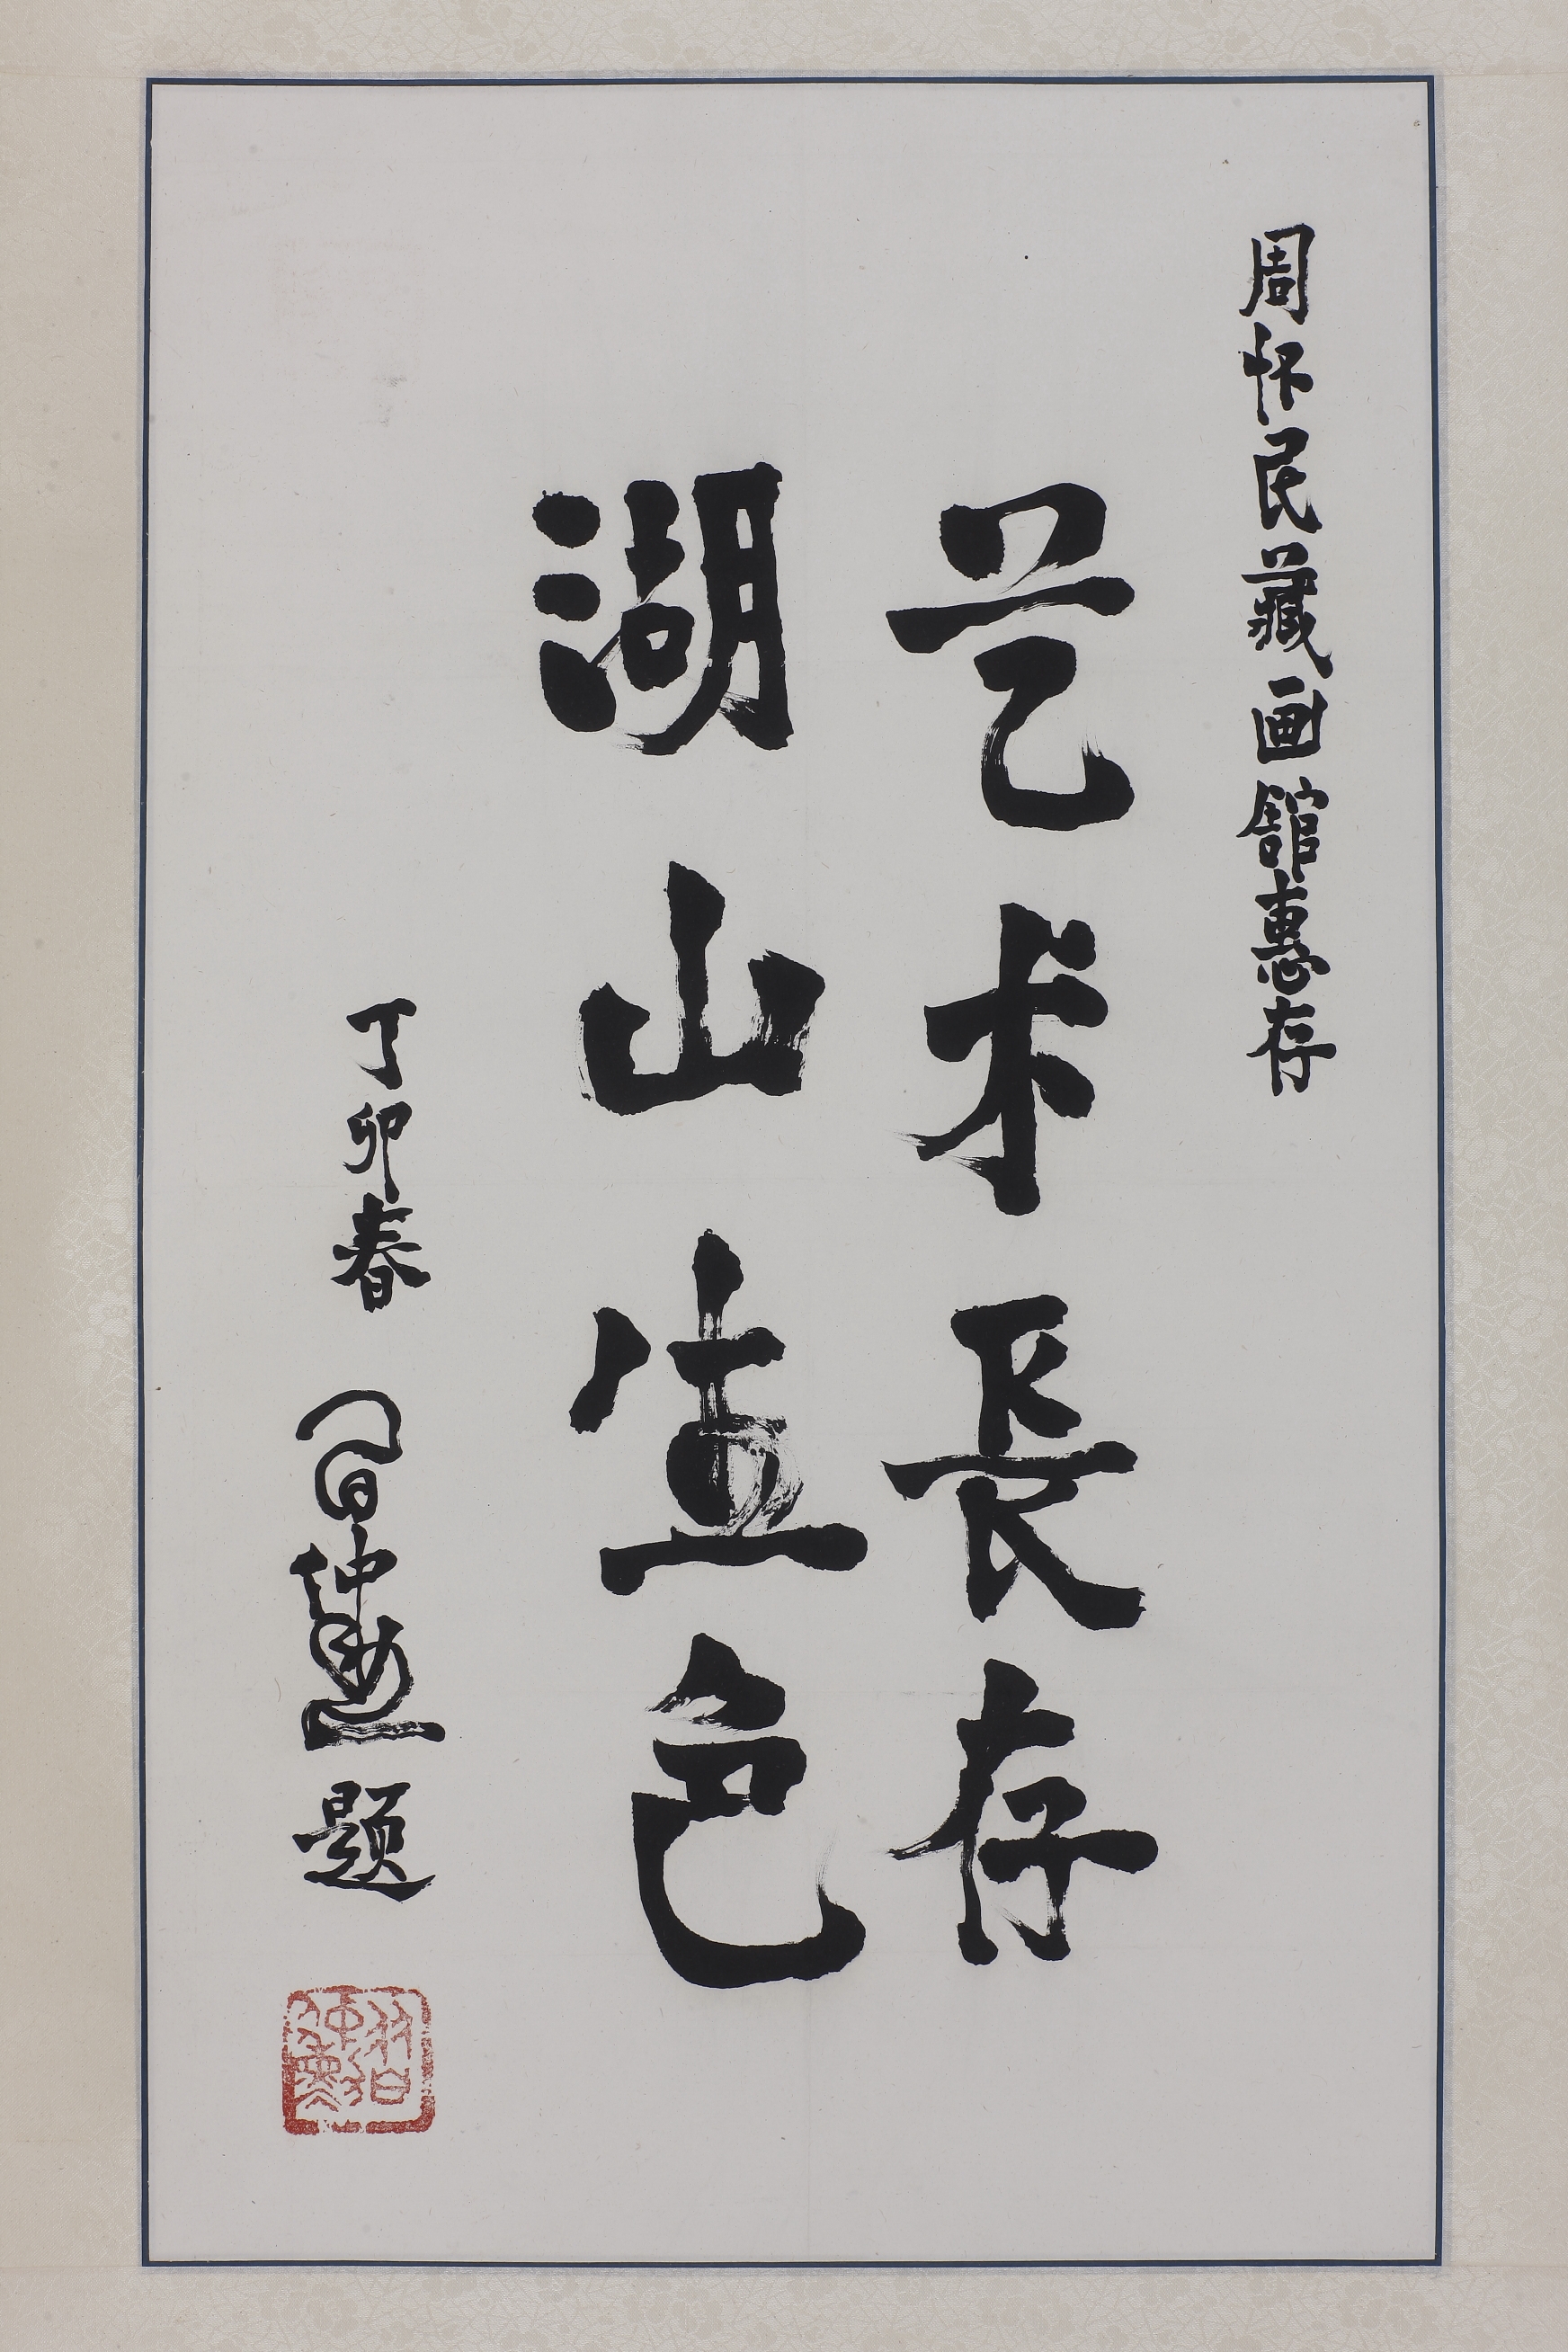 周怀民藏画館惠存
艺术長存
湖山生色
丁卯春 習仲勋題
習仲勳